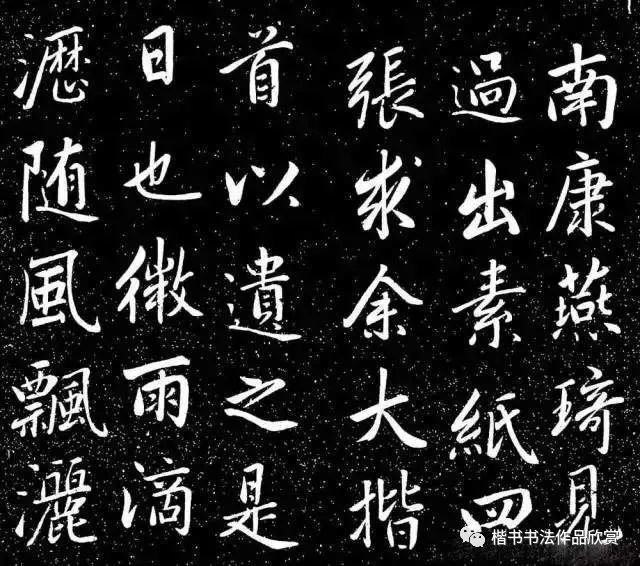 南康燕琦見
過出素紙四
張求余大揩
首以遺之是
日也微雨滴
瀝随風飄灑
楷书书法作品欣赏